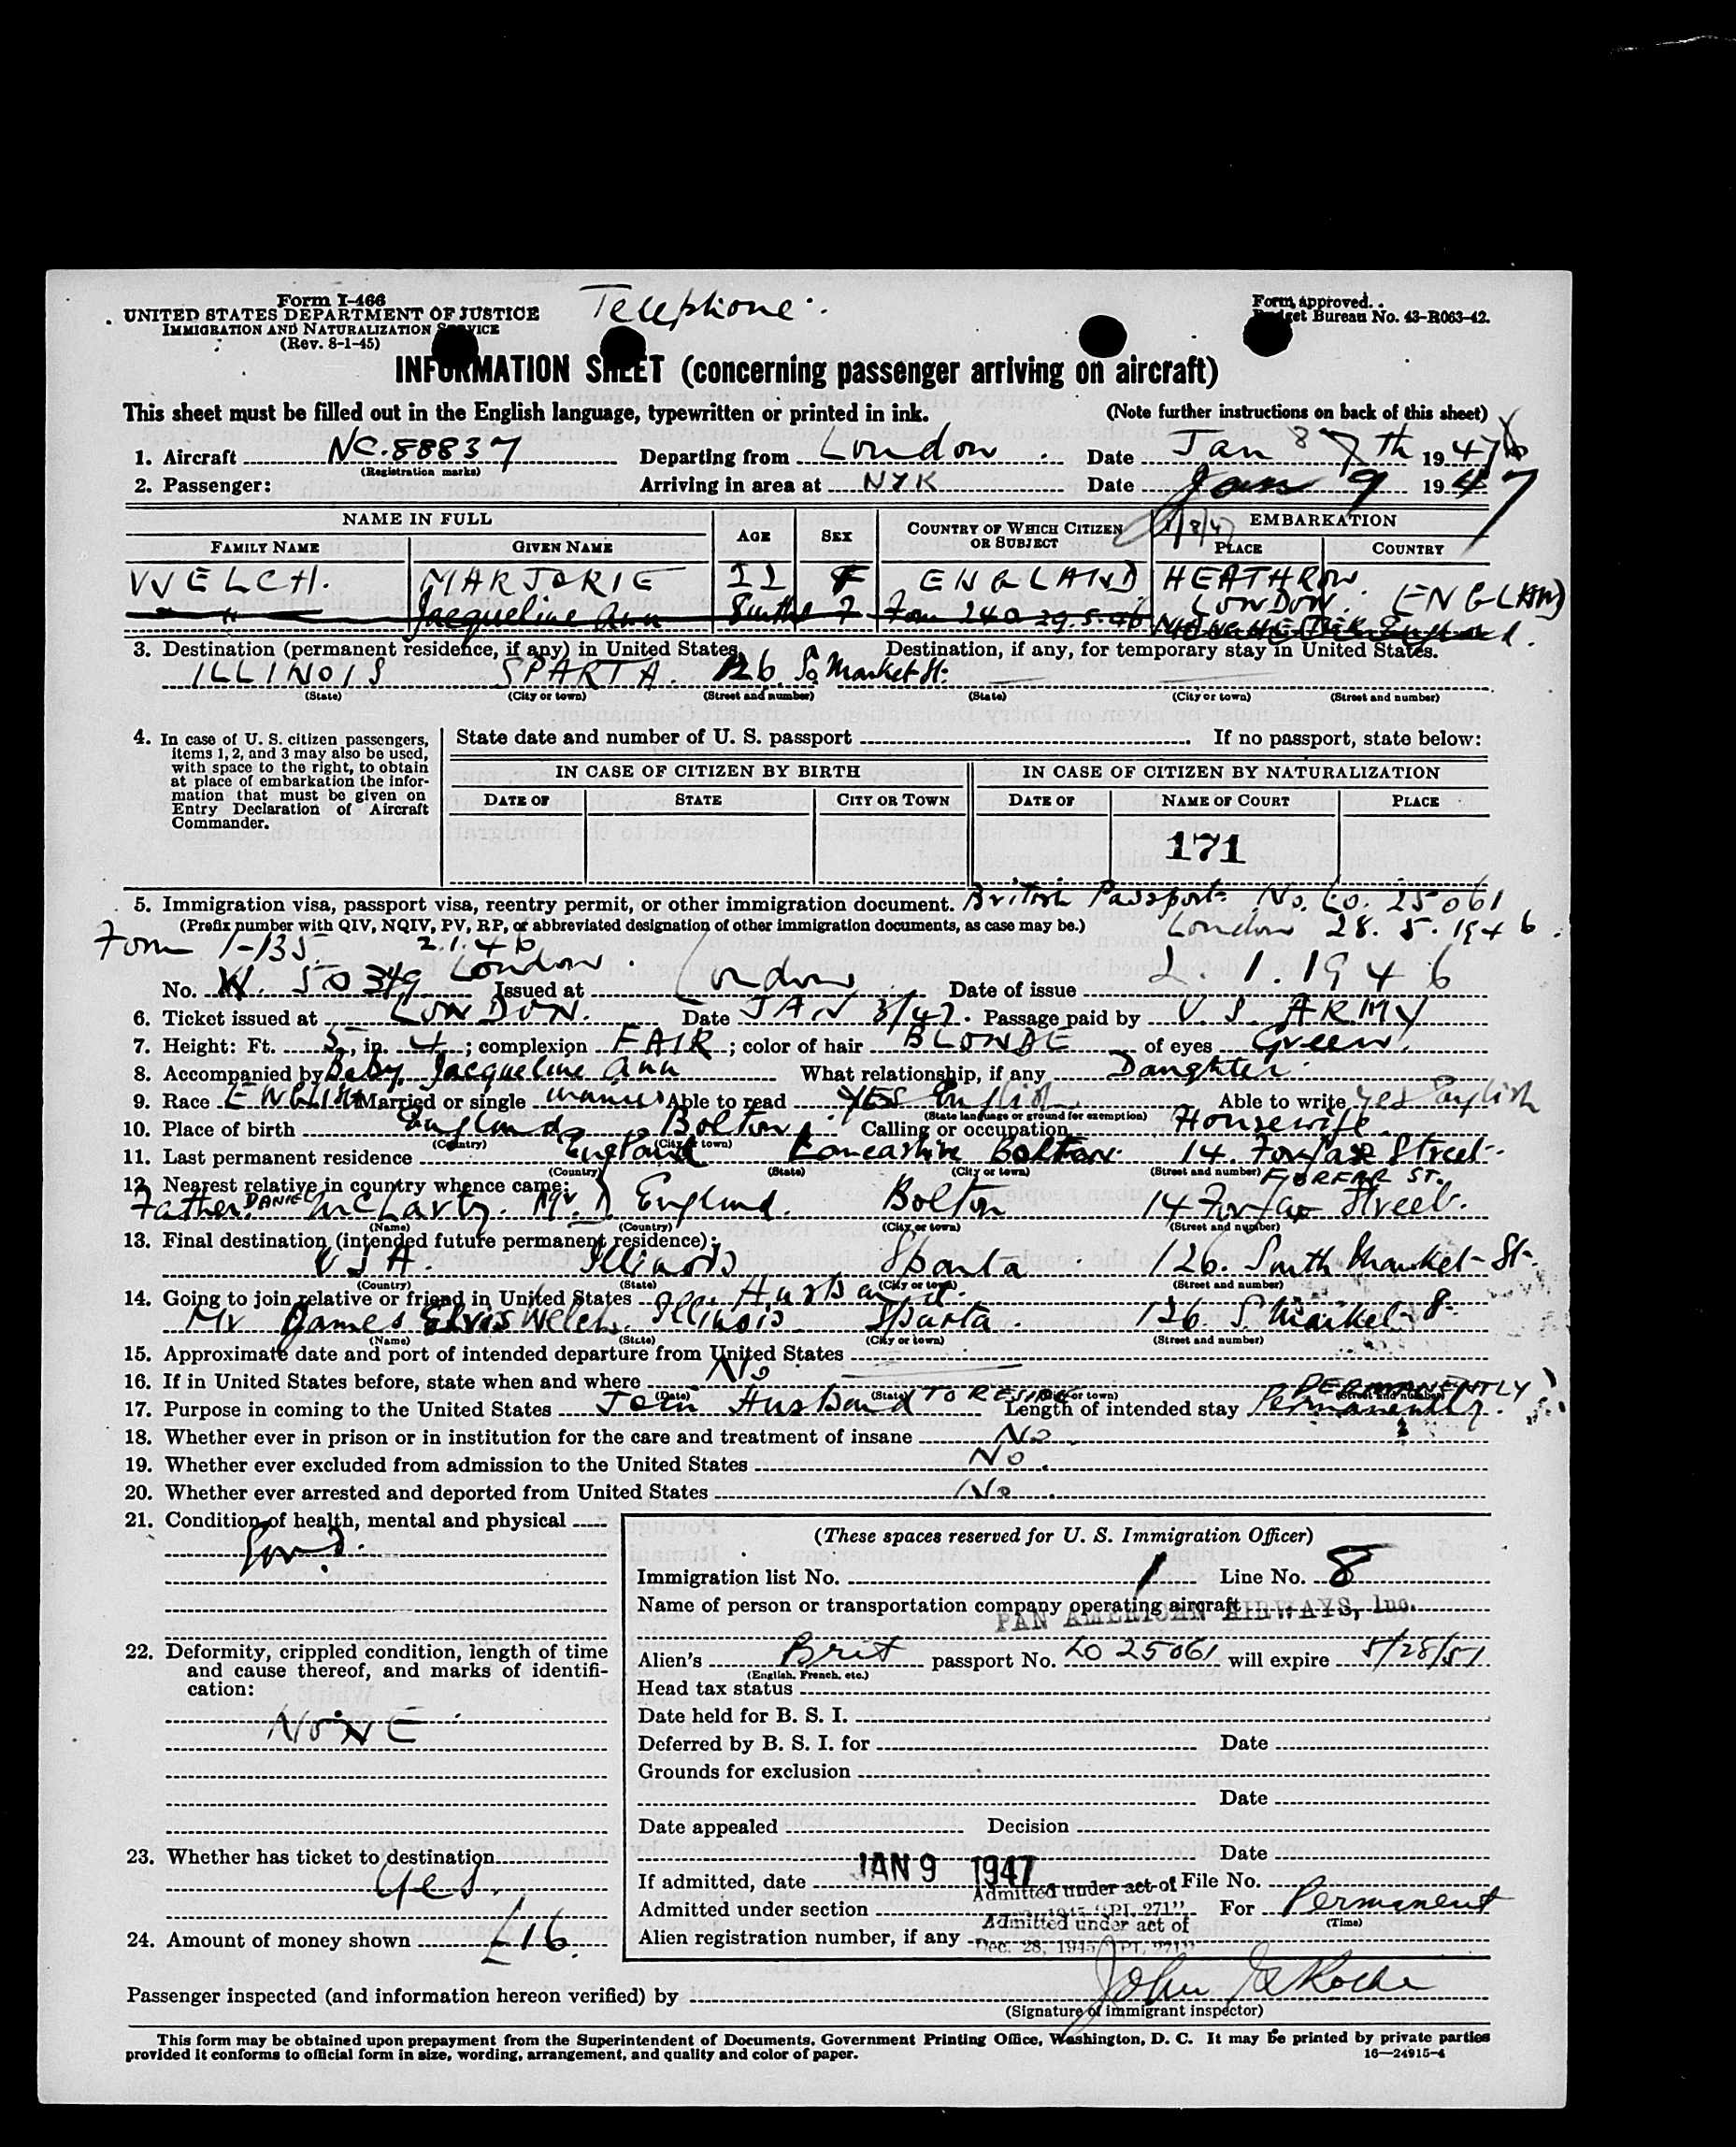 Form I-466
UNITED STATES DEPARTMENT OF JUSTICE
IMMIGRATION AND NATURALIZATION SERVICE
(Rev. 8-1-45)
Telephone.
Form approved.
Budget Bureau No. 43-R063-42.
INFORMATION SHEET (concerning passenger arriving on aircraft)
This sheet must be filled out in the English language, typewritten or printed in ink. (Note further instructions on back of this sheet)
1. Aircraft NC.88837 Departing from London Date Jan 8 7th 1947
(Registration marks)
2. Passenger: Arriving in area at NYK Date Jan 9 1947
NAME IN FULL AGE SEX COUNTRY OF WHICH CITIZEN OR SUBJECT 1/8/47 EMBARKATION
FAMILY NAME GIVEN NAME PLACE COUNTRY
WELCH. MARJORIE F ENGLAND HEATHROW LONDON. ENGLAND
" Jacqueline Ann Form 240 29.5.46
3. Destination (permanent residence, if any) in United States Destination, if any, for temporary stay in United States.
ILLINOIS SPARTA. 126 So Market St.
(State) (City or town) (Street and number) (State) (City or town) (Street and number)
4. In case of U. S. citizen passengers, items 1, 2, and 3 may also be used, with space to the right, to obtain at place of embarkation the information that must be given on Entry Declaration of Aircraft Commander.
State date and number of U. S. passport If no passport, state below:
IN CASE OF CITIZEN BY BIRTH IN CASE OF CITIZEN BY NATURALIZATION
DATE OF STATE CITY OR TOWN DATE OF NAME OF COURT PLACE
171
5. Immigration visa, passport visa, reentry permit, or other immigration document. British Passport No. Lo. 25061
(Prefix number with QIV, NQIV, PV, RP, or abbreviated designation of other immigration documents, as case may be.) London 28. 5. 1946.
Form I-135. 2.1.46 London.
No. W. 50349 Issued at London Date of issue 2.1.1946
6. Ticket issued at LONDON. Date JAN 3/47. Passage paid by U. S. ARMY
7. Height: Ft. 5, in. 4; complexion FAIR; color of hair BLONDE of eyes Green.
8. Accompanied by Baby, Jacqueline Ann What relationship, if any Daughter.
9. Race ENGLISH Married or single Able to read YES English Able to write Yes English
(State language or ground for exemption)
10. Place of birth England Bolton. Calling or occupation Housewife.
(Country) (City or town)
11. Last permanent residence England Lancashire Bolton. 14. Forfar Street.
(Country) (State) (City or town) (Street and number)
12. Nearest relative in country whence came: FORFAR ST.
Father. DANIEL McClarty. Mr. D England. Bolton 14 Forfar Street.
(Name) (Country) (City or town) (Street and number)
13. Final destination (intended future permanent residence):
USA. Illinois Sparta 126. South Market St.
(Country) (State) (City or town) (Street and number)
14. Going to join relative or friend in United States Husband.
Mr James Elvis Welch. Illinois Sparta. 126. S. Market S.
(Name) (State) (City or town) (Street and number)
15. Approximate date and port of intended departure from United States
16. If in United States before, state when and where No
(Date) (State) (City or town) (Street and number)
PERMANENTLY
17. Purpose in coming to the United States Join Husband TO RESIDE Length of intended stay Permanently.
18. Whether ever in prison or in institution for the care and treatment of insane No.
19. Whether ever excluded from admission to the United States No.
20. Whether ever arrested and deported from United States No.
21. Condition of health, mental and physical
Good.
22. Deformity, crippled condition, length of time and cause thereof, and marks of identification:
NONE
23. Whether has ticket to destination
Yes.
24. Amount of money shown £16.
(These spaces reserved for U. S. Immigration Officer)
Immigration list No. 1 Line No. 8
Name of person or transportation company operating aircraft
PAN AMERICAN AIRWAYS, Inc.
Alien's Brit passport No. LO 25061 will expire 5/28/51
(English, French, etc.)
Head tax status
Date held for B. S. I.
Deferred by B. S. I. for Date
Grounds for exclusion
Date
Date appealed Decision
Date
If admitted, date JAN 9 1947 File No.
Admitted under act of
Admitted under section 1945 "PL 271" For Permanent
(Time)
Admitted under act of
Alien registration number, if any Dec. 28, 1945 "PL 271"
Passenger inspected (and information hereon verified) by
(Signature of immigrant inspector)
This form may be obtained upon prepayment from the Superintendent of Documents, Government Printing Office, Washington, D. C. It may be printed by private parties
provided it conforms to official form in size, wording, arrangement, and quality and color of paper. 16—24915-4